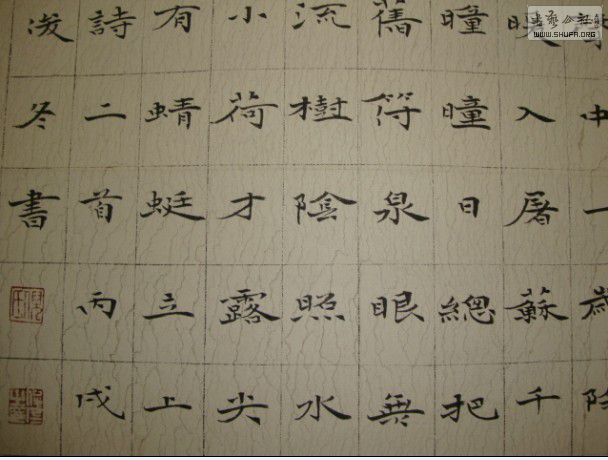 書藝公社
WWW.SHUFA.ORG
聲中一歲除
暖入屠蘇千
曈曈日總把
舊符泉眼無
流樹陰照水
小荷才露尖
有蜻蜓立上
詩二首丙戌
冬書